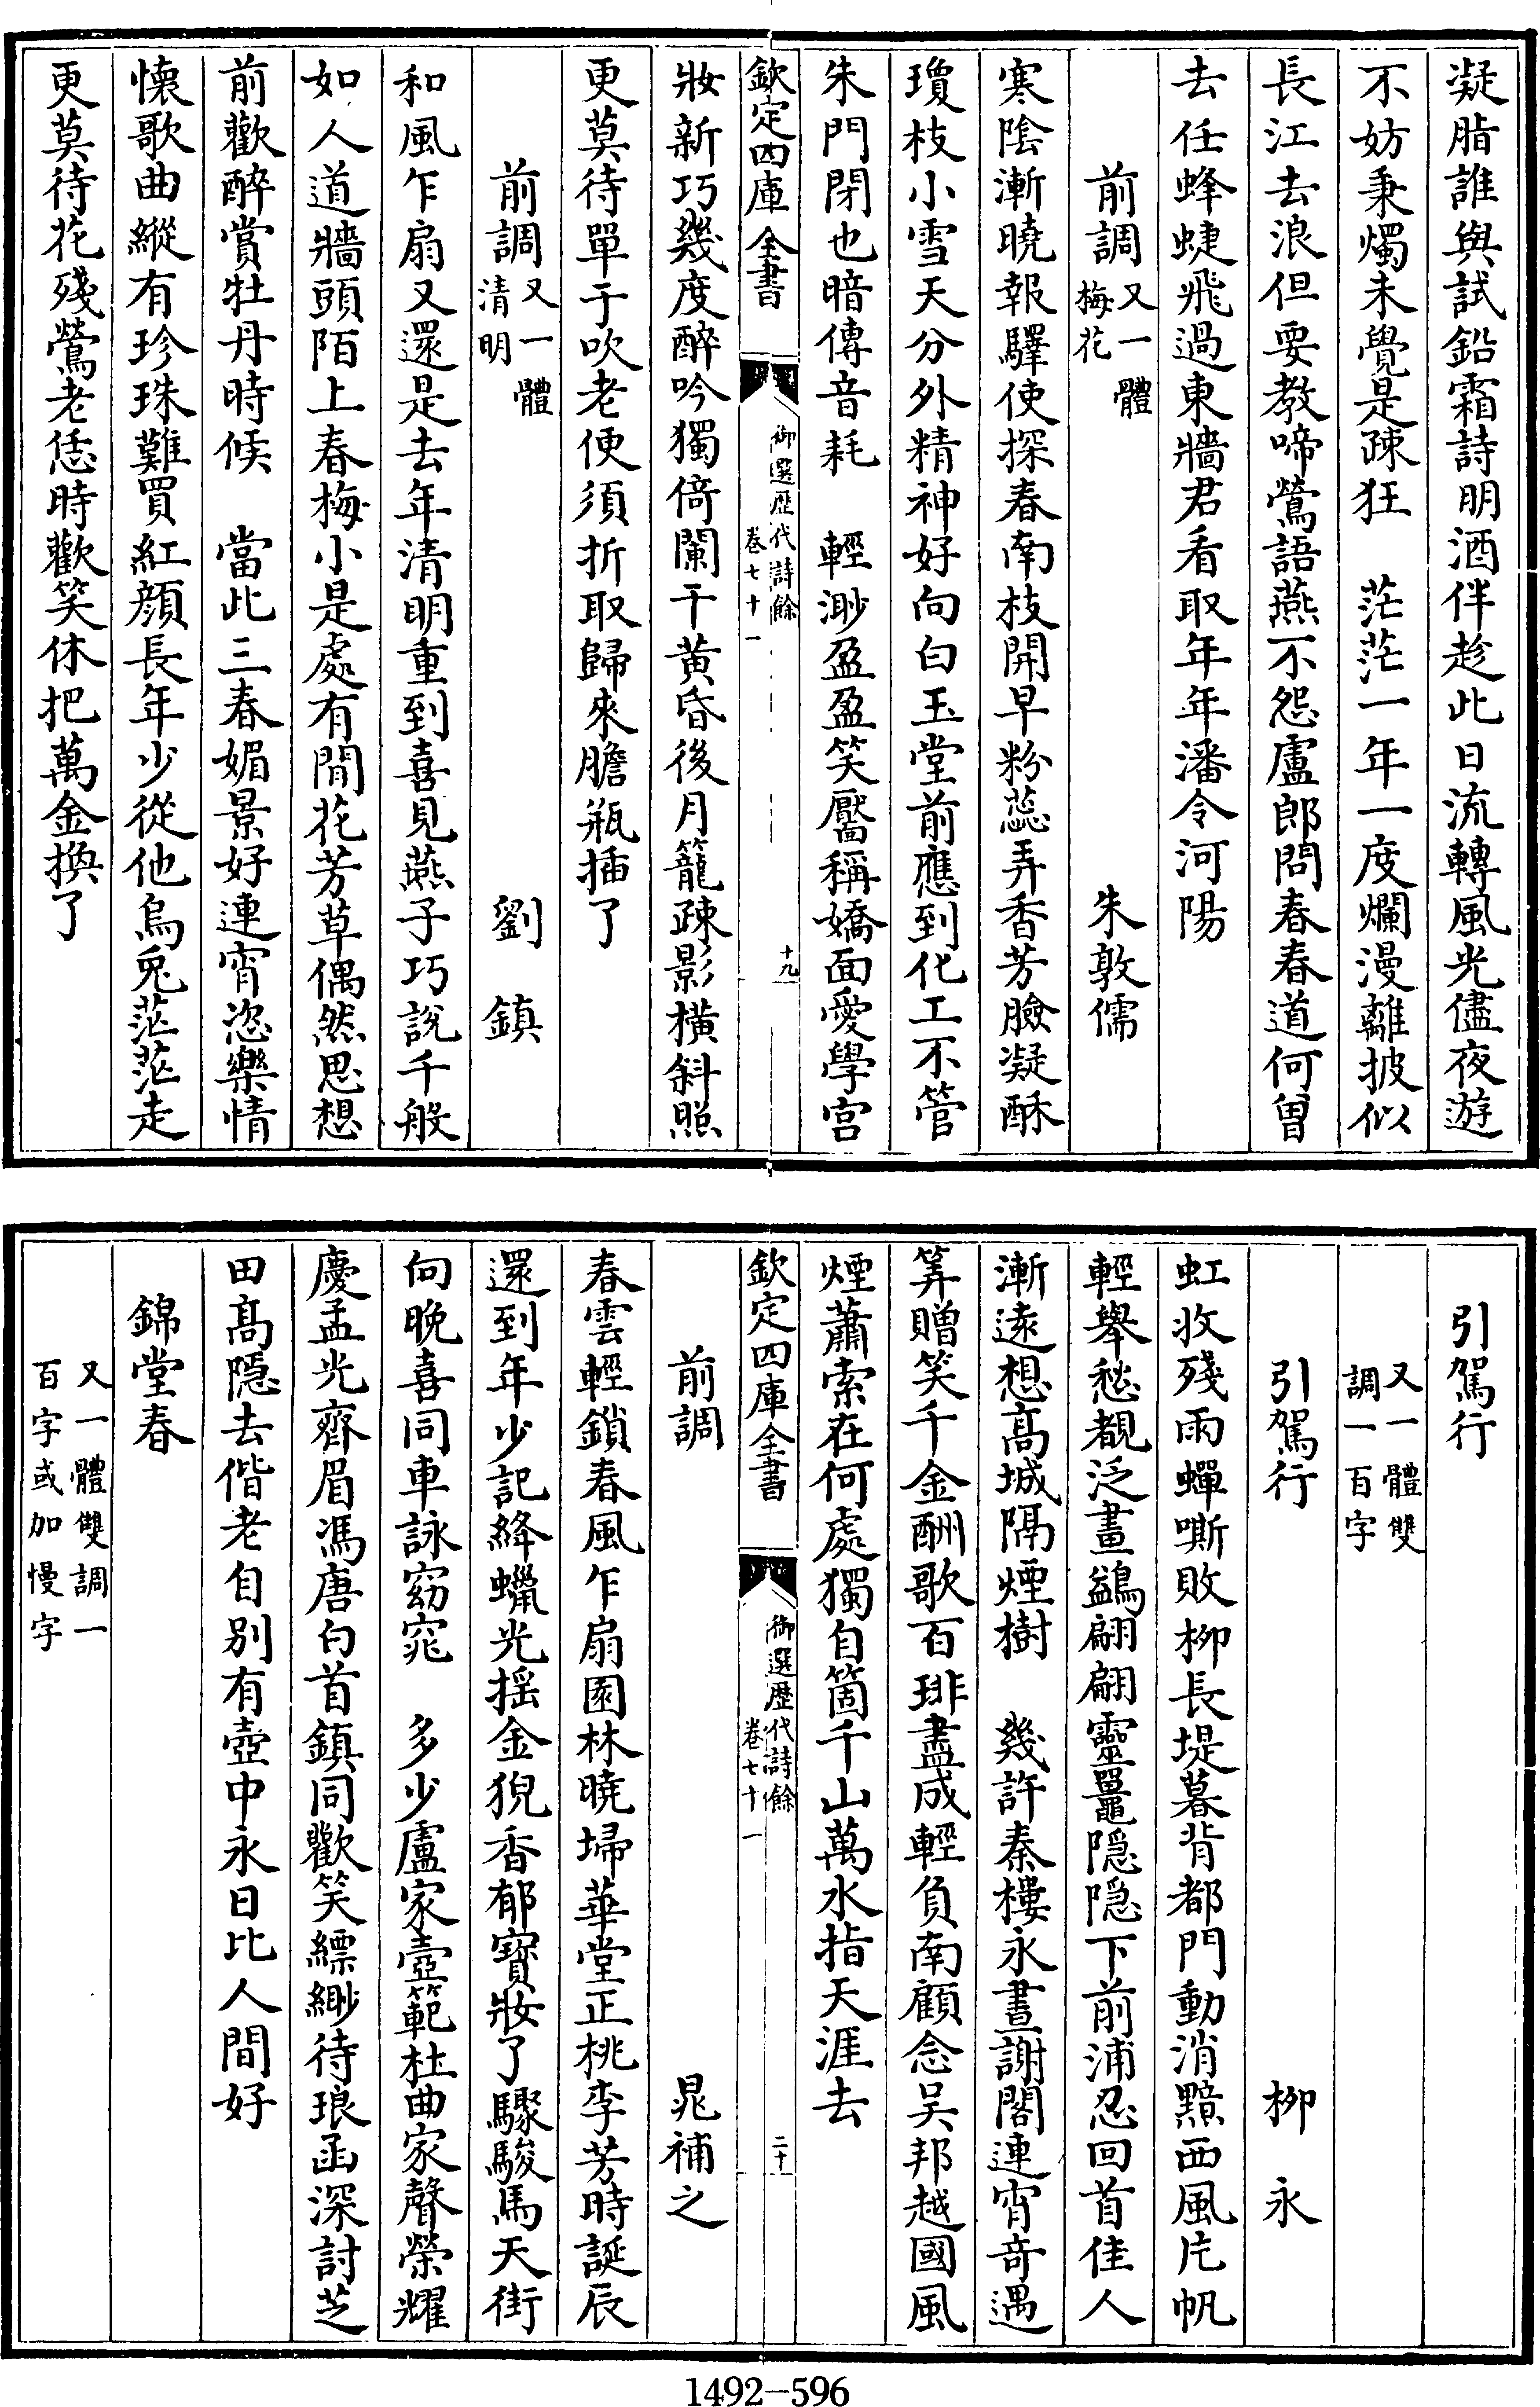 凝脂誰與試鉛霜詩明酒伴趁此日流轉風光儘夜遊
不妨秉燭未覺是疎狂　茫茫一年一度爛漫離披似
長江去浪但要教啼鶯語燕不怨盧郎問春春道何曾
去任蜂蜨飛過東牆君看取年年潘令河陽
前調又一體梅花　朱敦儒
寒陰漸曉報驛使探春南枝開早粉蕊弄香芳臉凝酥
瓊枝小雪天分外精神好向白玉堂前應到化工不管
朱門閉也暗傳音耗　輕渺盈盈笑靨稱嬌面愛學宮
欽定四庫全書
御選歷代詩餘
卷七十一
十九
妝新巧幾度醉吟獨倚闌干黃昏後月籠疎影橫斜照
更莫待單于吹老便須折取歸來膽瓶插了
前調又一體清明　劉鎮
和風乍扇又還是去年清明重到喜見燕子巧說千般
如人道牆頭陌上春梅小是處有閒花芳草偶然思想
前歡醉賞牡丹時候　當此三春媚景好連宵恣樂情
懷歌曲縱有珍珠難買紅顏長年少從他烏兔茫茫走
更莫待花殘鶯老恁時歡笑休把萬金換了
引駕行
又一體雙調一百字
引駕行　柳永
虹收殘雨蟬嘶敗柳長堤暮背都門動消黯西風片帆
輕舉愁覩泛畫鷁翩翩靈鼉隱隱下前浦忍回首佳人
漸遠想高城隔煙樹　幾許秦樓永晝謝閣連宵奇遇
筭贈笑千金酬歌百琲盡成輕負南顧念吳邦越國風
煙蕭索在何處獨自箇千山萬水指天涯去
欽定四庫全書
御選歷代詩餘
卷七十一
二十
前調　晁補之
春雲輕鎖春風乍扇園林曉埽華堂正桃李芳時誕辰
還到年少記絳蠟光搖金猊香郁寶妝了驟駿馬天街
向晚喜同車詠窈窕　多少盧家壼範杜曲家聲榮耀
慶孟光齊眉馮唐白首鎮同歡笑縹緲待琅函深討芝
田高隱去偕老自別有壺中永日比人間好
錦堂春
又一體雙調一百字或加慢字
1492-596